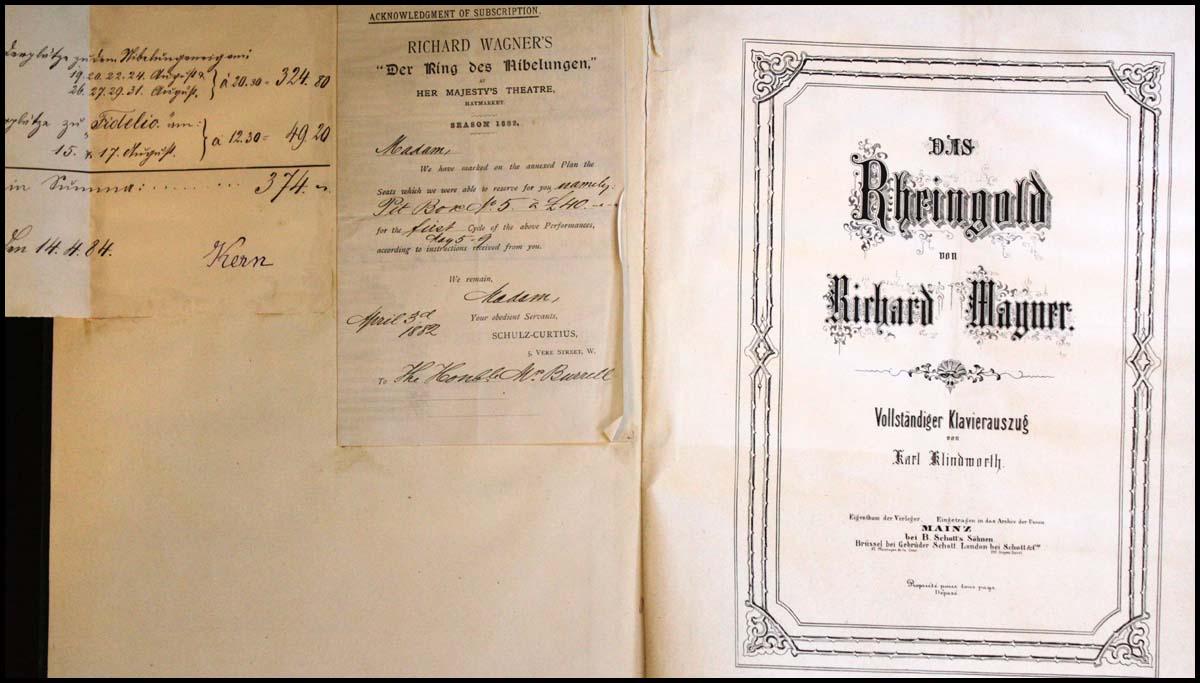 zu dem Nibelungenring am:
19. 20. 22. 24. August &
26. 27. 29. 31. August. } à 20.30 = 324.80
plätze zu „Fidelio“ am:
15. & 17. August. } à 12.30 = 49.20
in Summa: . . . . . . . . . . 374.
Den 14.4.84.
Kern
ACKNOWLEDGMENT OF SUBSCRIPTION.
RICHARD WAGNER'S
"Der Ring des Nibelungen,"
AT
HER MAJESTY'S THEATRE,
HAYMARKET.
SEASON 1882.
Madam,
We have marked on the annexed Plan the
Seats which we were able to reserve for you, namely:
Pit Box No 5. à £40.
for the first Cycle of the above Performances,
May 5-9
according to instructions received from you.
We remain,
Madam,
Your obedient Servants,
April 3d
1882
SCHULZ-CURTIUS,
5, VERE STREET, W.
To The Honble Mrs Burrell
DAS
Rheingold
von
Richard Wagner.
Vollständiger Klavierauszug
von
Karl Klindworth.
Eigenthum der Verleger. Eingetragen in das Archiv der Union.
MAINZ
bei B. Schott's Söhnen.
Brüssel bei Gebrüder Schott. London bei Schott & Co.
Propriété pour tous pays.
Déposé.